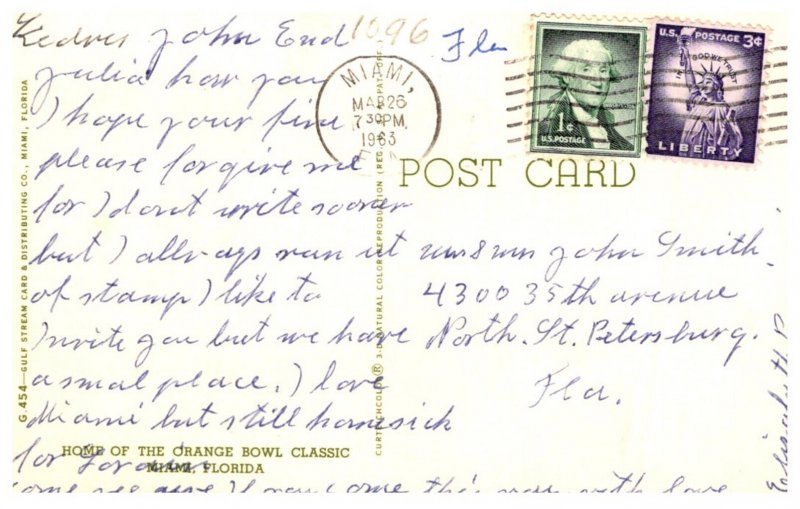 Kedves John End
Julia how you
I hope your fine
please forgive me
for I dont write sooner
but I allways run ut
of stamp I like to
Invite you but we have
a smal place. I love
Miami but still homesick
for
come see I you come this way with love
Elisabeth
1096 Fla
MIAMI,
MAR 26
7 30 PM
1963
1¢
U.S. POSTAGE
U.S. POSTAGE 3¢
IN GOD WE TRUST
LIBERTY
POST CARD
John Smith
4300 35th avenue
North. St. Petersburg.
Fla.
HOME OF THE ORANGE BOWL CLASSIC
MIAMI, FLORIDA
G.454—GULF STREAM CARD & DISTRIBUTING CO., MIAMI, FLORIDA
CURTEICHCOLOR® 3-D NATURAL COLOR REPRODUCTION (REG. U.S.A. PAT. OFF.)